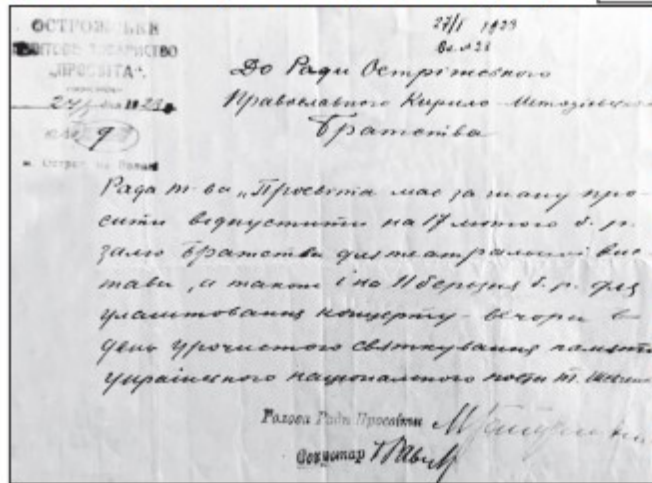 ОСТРОЖСЬКЕ
ТОВАРИСТВО
„ПРОСВІТА"
27/I 1923
До Ради Острізького
Православного Кирило-Методіївського
Братства
Рада т-ва „Просвіта має за шану про-
сити відпустити на 17 лютого б. р.
залю Братства для театральної вис-
тави, а також і на 11 березня б. р. для
улаштовання концерту-вечора в
день урочистого святкування памяти
українського національного поета Т.
Голова Ради Просвіти
Секретар